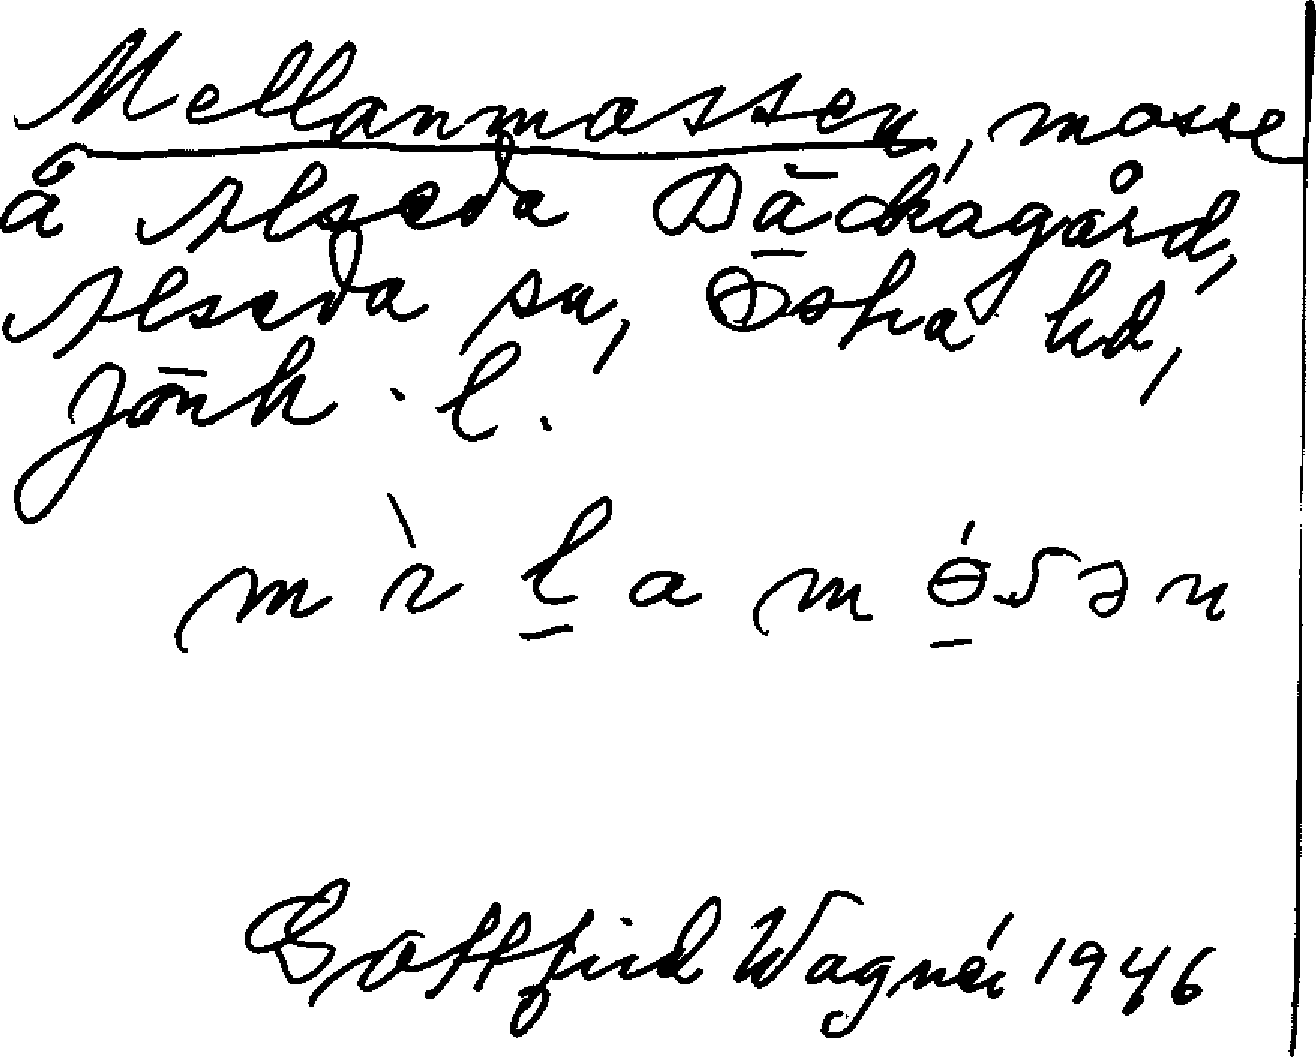 Mellanmossen, mosse
å Alseda Bäckagård,
Alseda sn, Östra hd,
Jönk. l.
Gottfrid Wagnér 1946